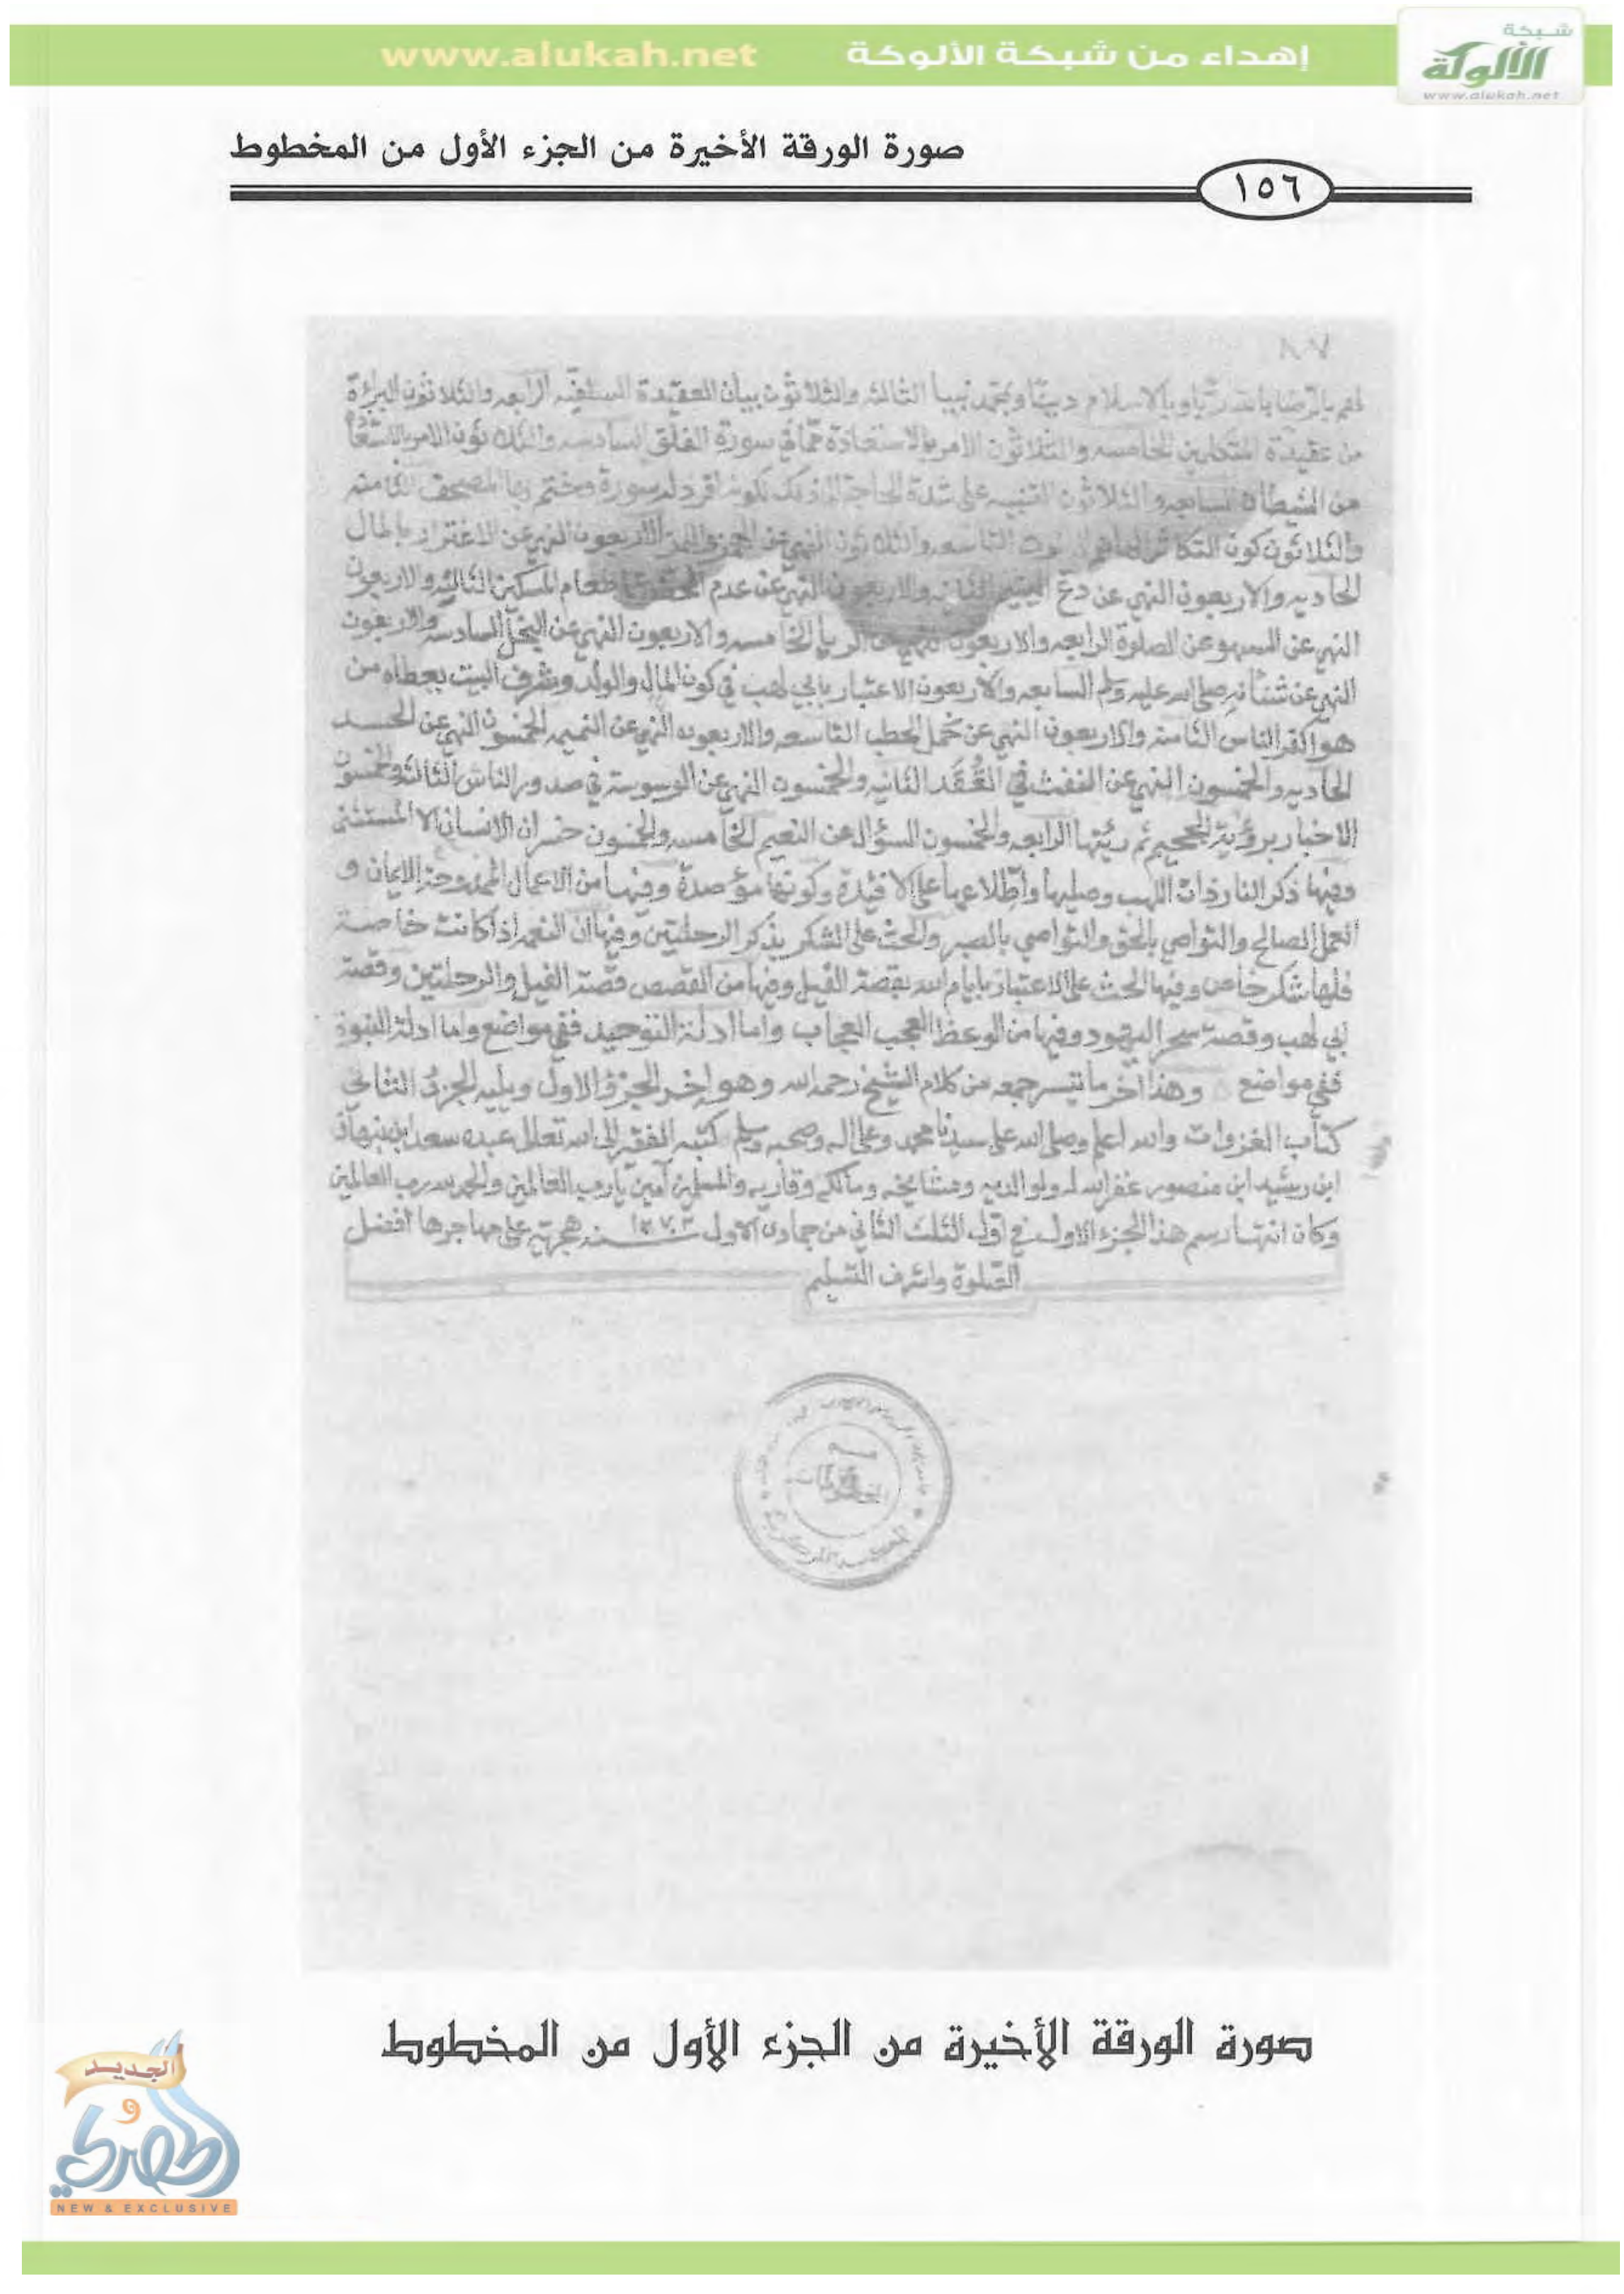 شبكة
الألوكة
www.alukah.net
إهداء من شبكة الألوكة
www.alukah.net
صورة الورقة الأخيرة من الجزء الأول من المخطوط
١٥٦
لهم بالرضا بالله ربا وبالاسلام دينا وبمحمد نبيا الثالثه والثلاثون بيان العقيدة السلفيه الرابعه والثلاثون البراءة
من عقيدة المتكلمين الخامسه والثلاثون الامر بالاستعاذة مما في سورة الفلق السادسه والثلاثون الامر بالاستعا
من الشيطان السابعه والثلاثون التنبيه على شدة الحاجة الى ذلك لكونه افرد له سورة وختم بها المصحف الثامنه
والثلاثون كون التكاثر التاسعه والثلاثون النهي عن الهمز واللمز الاربعون النهي عن الاغترار بالمال
الحاديه والاربعون النهي عن دع اليتيم الثانيه والاربعون النهي عن عدم طعام المسكين الثالثه والاربعون
النهي عن السهو عن الصلوة الرابعه والاربعون الريا الخامسه والاربعون النهي عن البخل السادسه والاربعون
النهي عن شنأنه صلى الله عليه وسلم السابعه والاربعون الاعتبار بابي لهب في كون المال والولد وشرف البيت يعطاه من
هو اكفر الناس الثامنه والاربعون النهي عن حمل الحطب التاسعه والاربعون النهي عن النميمه الخمسون النهي عن الحسد
الحاديه والخمسون النهي عن النفث في العُقَد الثانيه والخمسون النهي عن الوسوسة في صدور الناس الثالثه والخمسون
الاخبار برؤية الجحيم ثم رئيتها الرابعه والخمسون السؤال عن النعيم الخامسه والخمسون خسران الانسان الا المستثنى
وفيها ذكر النار ذات اللهب وصليها واطلاعها على الافئدة وكونها مؤصدة وفيها من الاعمال الممدوحة الايمان و
العمل الصالح والتواصي بالحق والتواصي بالصبر والحث على الشكر بذكر الرحلتين وفيها ان النعم اذا كانت خاصة
فلها شكر خاص وفيها الحث على الاعتبار بايام الله بقصة الفيل وفيها من القصص قصة الفيل والرحلتين وقصة
ابي لهب وقصة سحر اليهود وفيها من الوعظ العجب العجاب واما ادلة التوحيد ففي مواضع واما ادلة النبوة
ففي مواضع وهذا آخر ما تيسر جمعه من كلام الشيخ رحمه الله وهو اخر الجزؤ الاول ويليه الجزؤ الثاني
كتاب الغزوات والله اعلم وصلى الله على سيدنا محمد وعلى اله وصحبه وسلم كتبه الفقير الى الله تعالى عبده سعد ابن نبهان
ابن رشيد ابن منصور غفر الله له ولوالديه ومشايخه ومالكه وقاريه والمسلمين آمين يا رب العالمين والحمد لله رب العالمين
وكان انتهاء رسم هذا الجزء الاول في اول الثلث الثاني من جمادى الاول سنة هجرية على مهاجرها افضل
الصلوة واشرف التسليم
المخطوطات
صورة الورقة الأخيرة من الجزء الأول من المخطوط
الجديد
و
الحصري
NEW & EXCLUSIVE